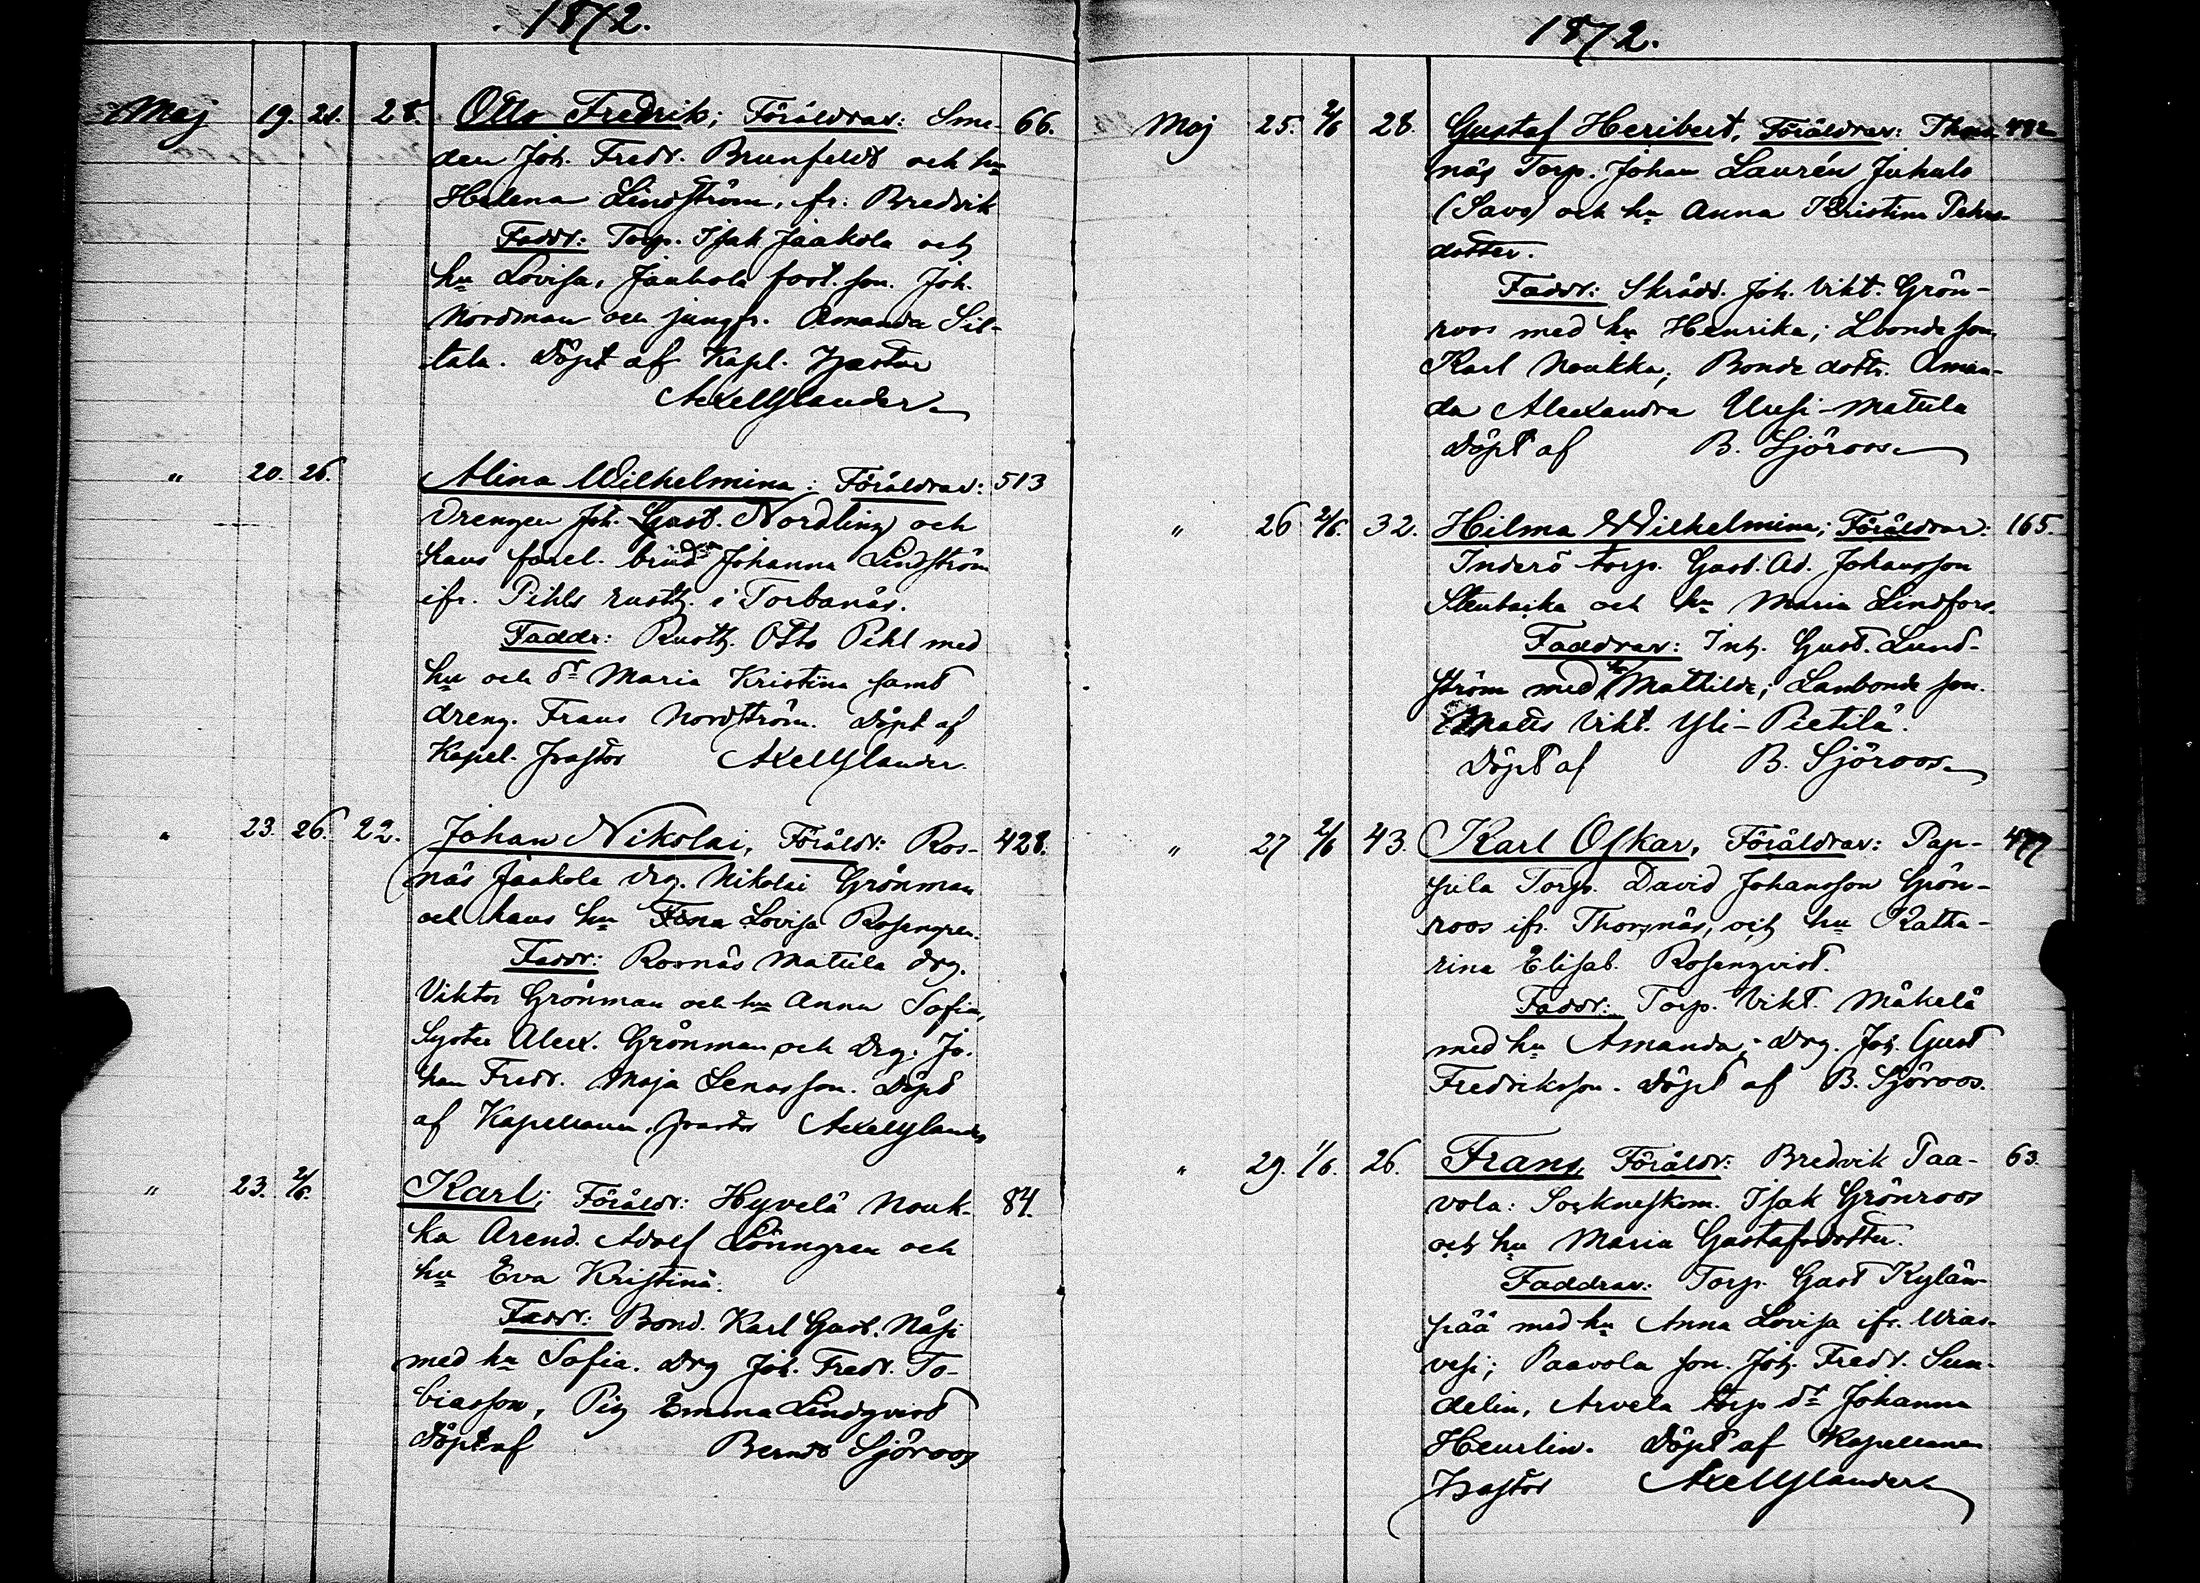 1872.
Maj 19. 21. 28. Otto Fredrik; Föräldrar: Sme- 66.
den Joh. Fredr. Brunfeldt och hu
Helena Lindström, fr. Bredvik
Faddr: Torp. Isak Jaakola och
hu Lovisa, Jaakola son. Joh.
Nordman och jungfr. Amanda Sil-
tala. Döpt af Kapl. Pastor
Axel Ylander
" 20. 26. Alina Wilhelmina: Föräldrar: 513
Drengen Joh. Gust. Nordling och
hans Johanna Lindström
ifr. Pihls rusth. i Torbanäs.
Faddr: Rusth. Otto Pihl med
hu och dr Maria Kristina samt
dreng. Frans Nordström. Döpt af
Kapel. Pastor Axel Ylander.
" 23. 26. 22. Johan Nikolai, Föräldr: Ros- 428.
näs Jaakola drg. Nikolai Grönman
och hans hu Lovisa Rosengren.
Faddr: Rosnäs Matula drg.
Viktor Grönman och hu Anna Sofia,
Syster Alex. Grönman och Drg. Jo-
han Fredr. Maja Lenasson. Döpt
af Kapellanen, pastor Axel Ylander
" 23. 2/6. Karl; Föräldr: Hyvelä Nouk- 84.
ka Arend. Adolf Lönngren och
hu Eva Kristina.
Faddr: Bond. Karl Gust. Näsi
med hu Sofia. Drg Joh. Fredr. To-
biasson, Pig Emma Lindqvist
Döpt af Berndt Sjöroos
1872.
Maj 25. 2/6 28. Gustaf Heribert, Föräldrar: 482
näs Torp. Johan Laurén Juhula
(Savo) och hu Anna Kristina Pehrs-
dotter.
Faddr: Skrädd. Joh. Vikt. Grön-
roos med hu Henrika; son.
Karl Noukka; Bonde dottr. Aman-
da Alexandra Uusi-Matula
Döpt af B. Sjöroos
" 26 2/6. 32. Hilma Wilhelmina; Föräldrar: 165.
Inderö torp. Gust. Ad. Johansson
Stenbacka och hu Maria Lindfors.
Faddrar: Inh. Gust. Lund-
ström med hu Mathilda; Lanbonde son.
Matts Vikt. Yli-Pietilä.
Döpt af B. Sjöroos
" 27 2/6 43. Karl Oskar, Föräldrar: Pap- 477
pila Torp. David Johansson Grön-
roos ifr. Thorsnäs, och hu Katha-
rina Elisab. Rosenqvist.
Faddr: Torp. Vikt. Mäkelä
med hu Amanda; Drg. Joh. Gust
Fredriksson. Döpt af B. Sjöroos.
" 29. 1/6. 26. Frans, Föräldr: Bredvik Paa- 63.
vola: Sockneskom. Isak Grönroos
och hu Maria Gustafsdotter.
Faddrar: Torp. Gust Kylän-
pää med hu Anna Lovisa ifr. Wias-
vesi; Paavola son. Joh. Fredr. Sun-
delin, Arvela torp dr Johanna
Heurlin. Döpt af Kapellanen
Pastor Axel Ylander